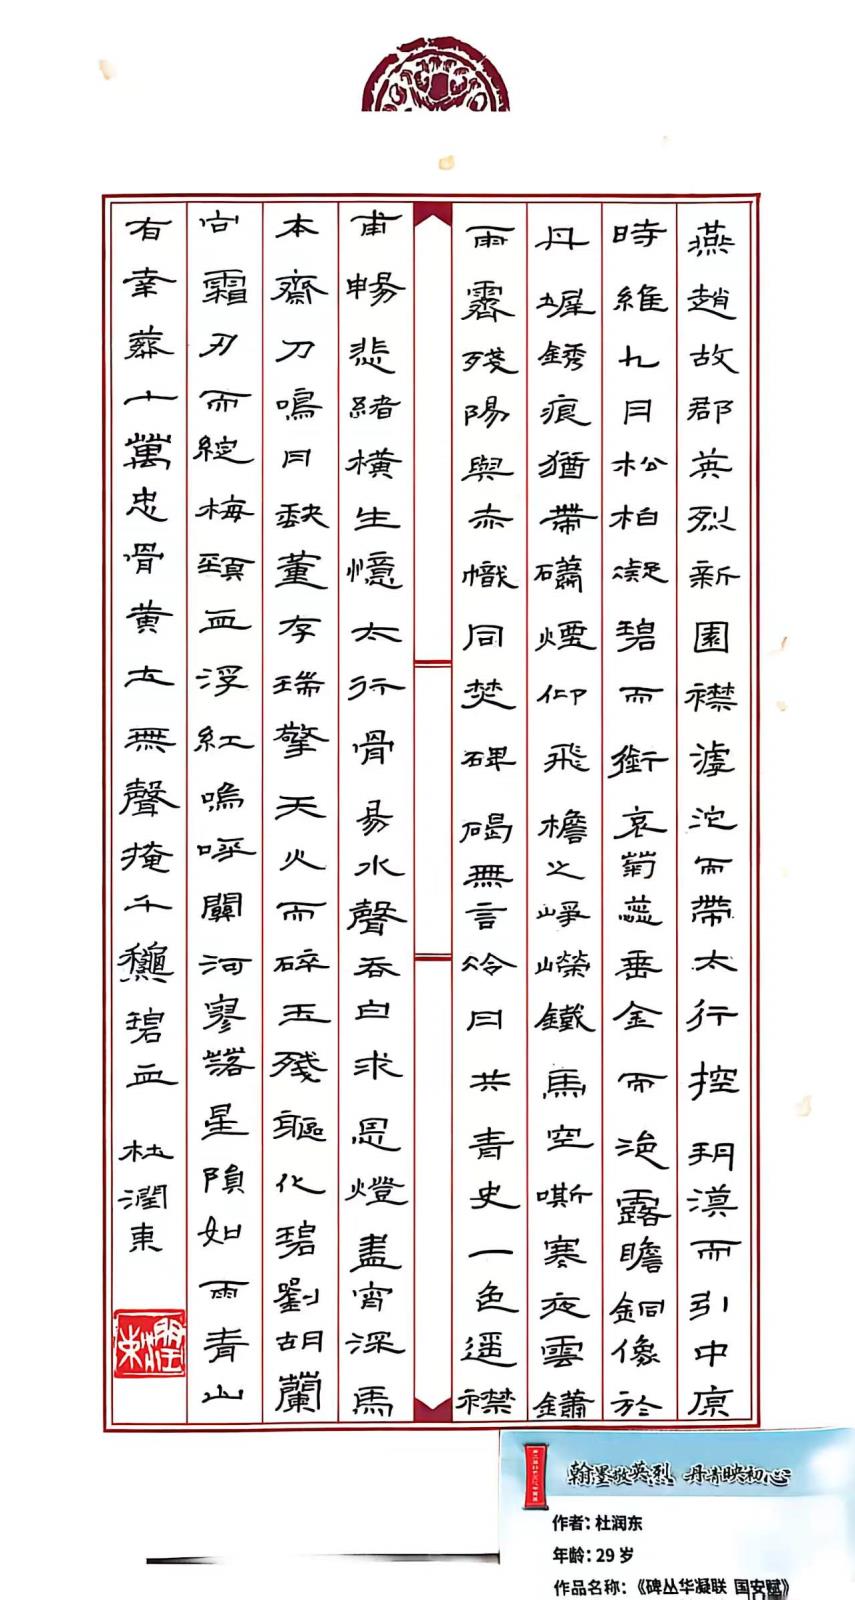 燕趙故郡英烈新園襟滹沱而帶太行控玥漠而引中原
時維九月松柏凝碧而銜哀菊蕊垂金而浥露瞻銅像於
丹墀銹痕猶帶硝煙仰飛檐之崢嶸鐵馬空嘶寒夜雲鏽
雨霽殘陽與赤幟同焚碑碣無言冷月共青史一色遥襟
甫暢悲緒橫生憶太行骨易水聲吞白求恩燈盡宵深馬
本齋刀鳴月缺董存瑞擎天火而碎玉殘軀化碧劉胡蘭
向霜刃而綻梅頸血浮紅嗚呼關河寥落星隕如雨青山
有幸葬十萬忠骨黄土無聲掩千龝碧血 杜潤東
潤東
翰墨敬英烈 丹青映初心
作者：杜润东
年龄：29 岁
作品名称：《碑丛华凝联 国安赋》